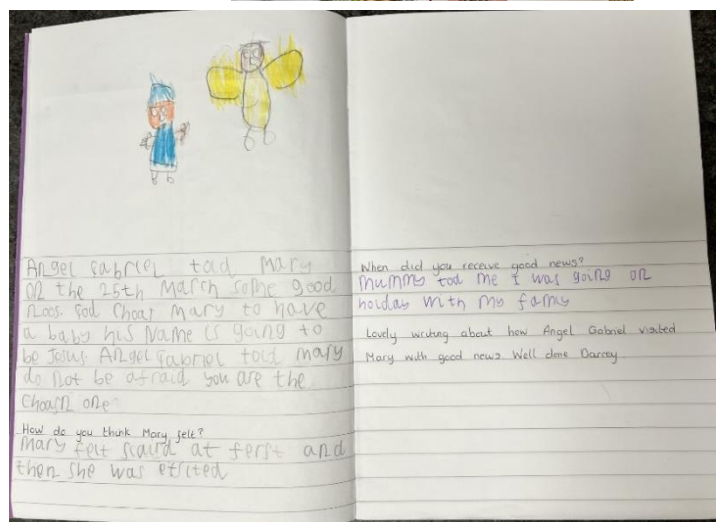 Angel Gabriel tad Mary
on the 25th March some good
noos. God choas Mary to have
a baby his Name is going to
be Jesus. Angel Gabriel told mary
do not be afraid you are the
choasn one
How do you think Mary felt?
Mary felt scaird at ferst and
then she was etcited
When did you receive good news?
Mummy tod me I was going on
holiday with my famy
Lovely writing about how Angel Gabriel visited
Mary with good news Well done Darcey